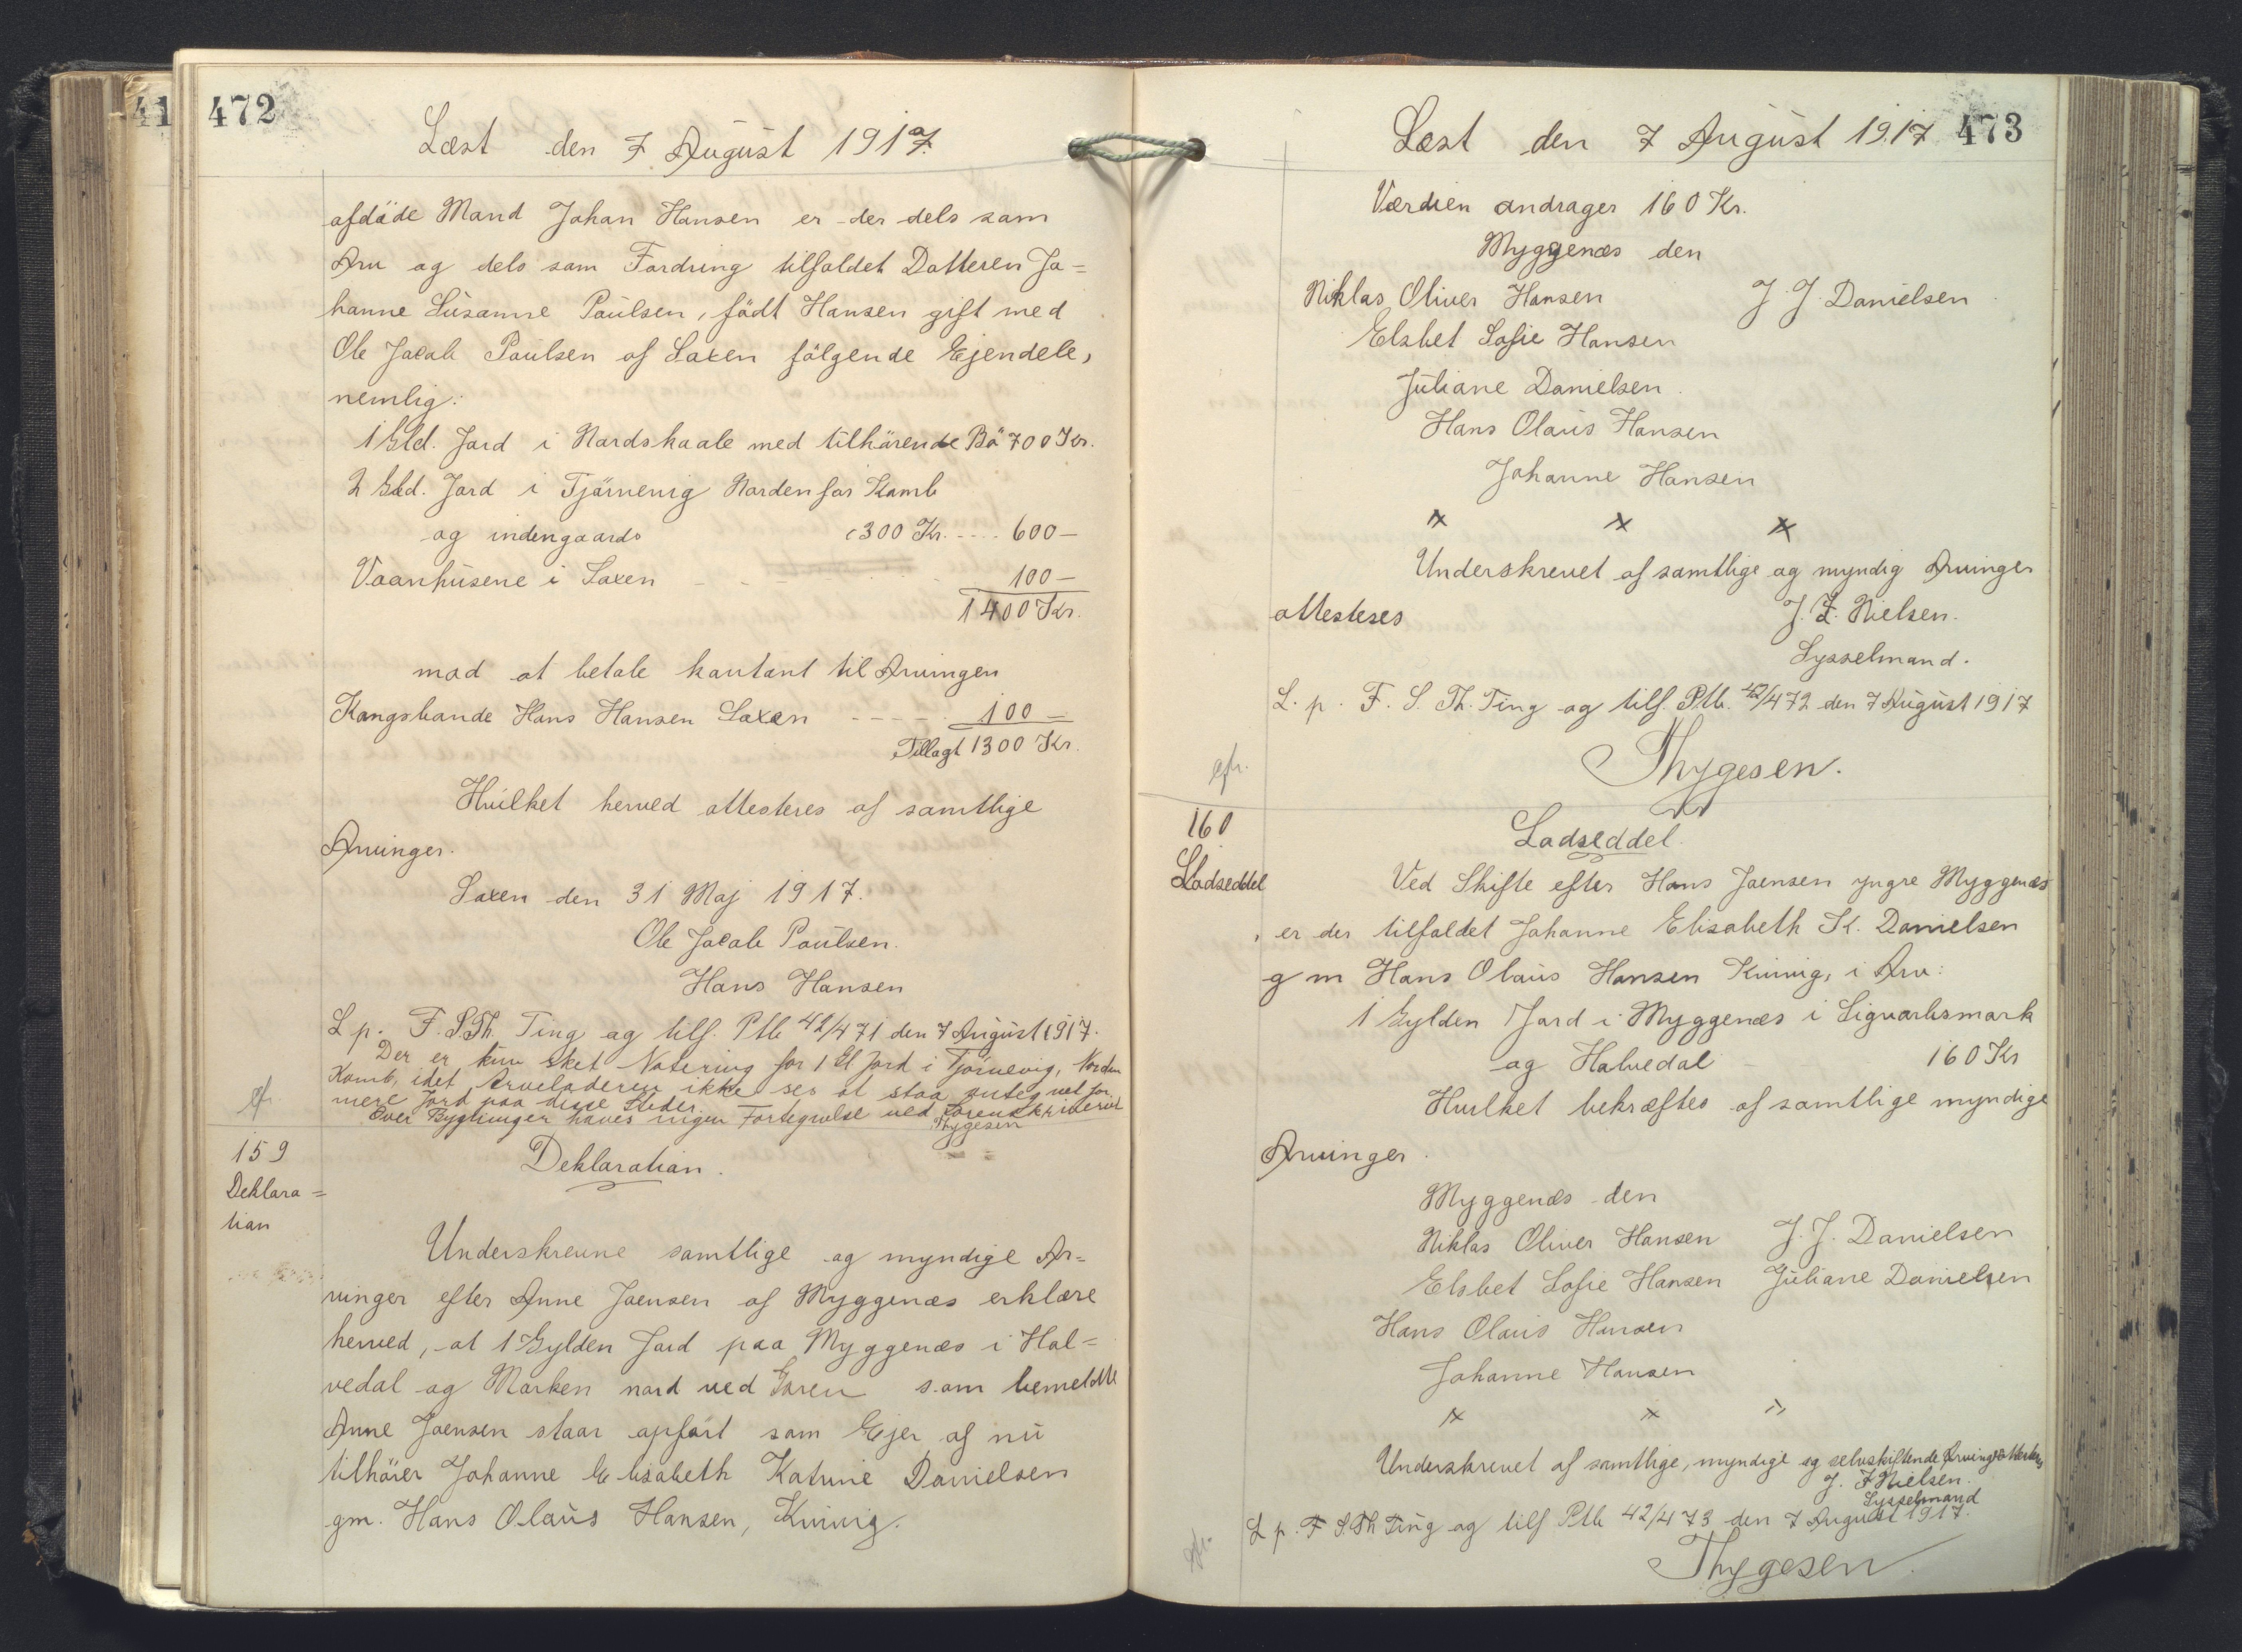 41
472
Læst den 7 August 1917.
afdöde Mand Johan Hansen er der dels som
Arv og dels som Fordring tilfaldet Datteren Jo=
hanne Susanne Poulsen, födt Hansen gift med
Ole Jacob Poulsen af Saxen fölgende Ejendele,
nemlig:
1 Gld. Jord i Nordskaale med tilhörende Bö 700 Kr.
2 Gld. Jord i Tjörnevig Nordenfor Kamb
og indengaards c 300 Kr. ---- 600 —
Vaanhusene i Saxen - - - 100 —
1400 Kr.
mod at betale kontant til Arvingen
Kongsbonde Hans Hansen Saxen ----- 100 —
Tillagt 1300 Kr.
Hvilket herved attesteres af samtlige
Arvinger.
Saxen den 31 Maj 1917.
Ole Jacob Poulsen.
Hans Hansen
L p. F. S. Th. Ting og tilf. Ptb 42/471 den 7 August 1917.
Der er kun sket Notering for 1 Gl Jord i Tjörnevig, Norden
Kamb, idet Arveladeren ikke ses at staa antegnet for
mere Jord paa disse Steder.
Over Bygninger haves ingen Fortegnelse ved Sorenskriveriet
Thygesen
159
Deklara=
tion
Deklaration.
Underskrevne samtlige og myndige Ar=
vinger efter Anne Joensen af Myggenæs erklære
herved, at 1 Gylden Jord paa Myggenæs i Hal=
vedal og Marken nord ved Garen som bemeldte
Anne Joensen staar opfört som Ejer af nu
tilhörer Johanne Elisabeth Katrine Danielsen
gm. Hans Olaus Hansen, Kvivig.
473
Læst den 7 August 1917
Værdien andrager 160 Kr.
Myggenæs den
Niklas Oliver Hansen J. J. Danielsen
Elsbet Sofie Hansen
Juliane Danielsen.
Hans Olaus Hansen
Johanne Hansen
x x x
Underskrevet af samtlige og myndig Arvinger
attesteres J. F. Nielsen.
Sysselmand.
L. p. F. S. Th. Ting og tilf. Ptb. 42/472 den 7 August 1917
Thygesen.
160
Lodseddel
Lodseddel.
Ved Skifte efter Hans Joensen yngre Myggenæs
er der tilfaldet Johanne Elisabeth K. Danielsen
g m Hans Olaus Hansen Kvivig, i Arv:
1 Gylden Jord i Myggenæs i Liguarhsmark
og Halvedal 160 Kr
Hvilket bekræftes af samtlige myndige
Arvinger.
Myggenæs den
Niklas Oliver Hansen J. J. Danielsen
Elsbet Sofie Hansen Juliane Danielsen
Hans Olaus Hansen
Johanne Hansen
x x x
Underskrevet af samtlige, myndige og selvskiftende Arvinger attesteres
J. F Nielsen.
Sysselmand
L p. F S. Th Ting og tilf Ptb 42/473 den 7 August 1917.
Thygesen.